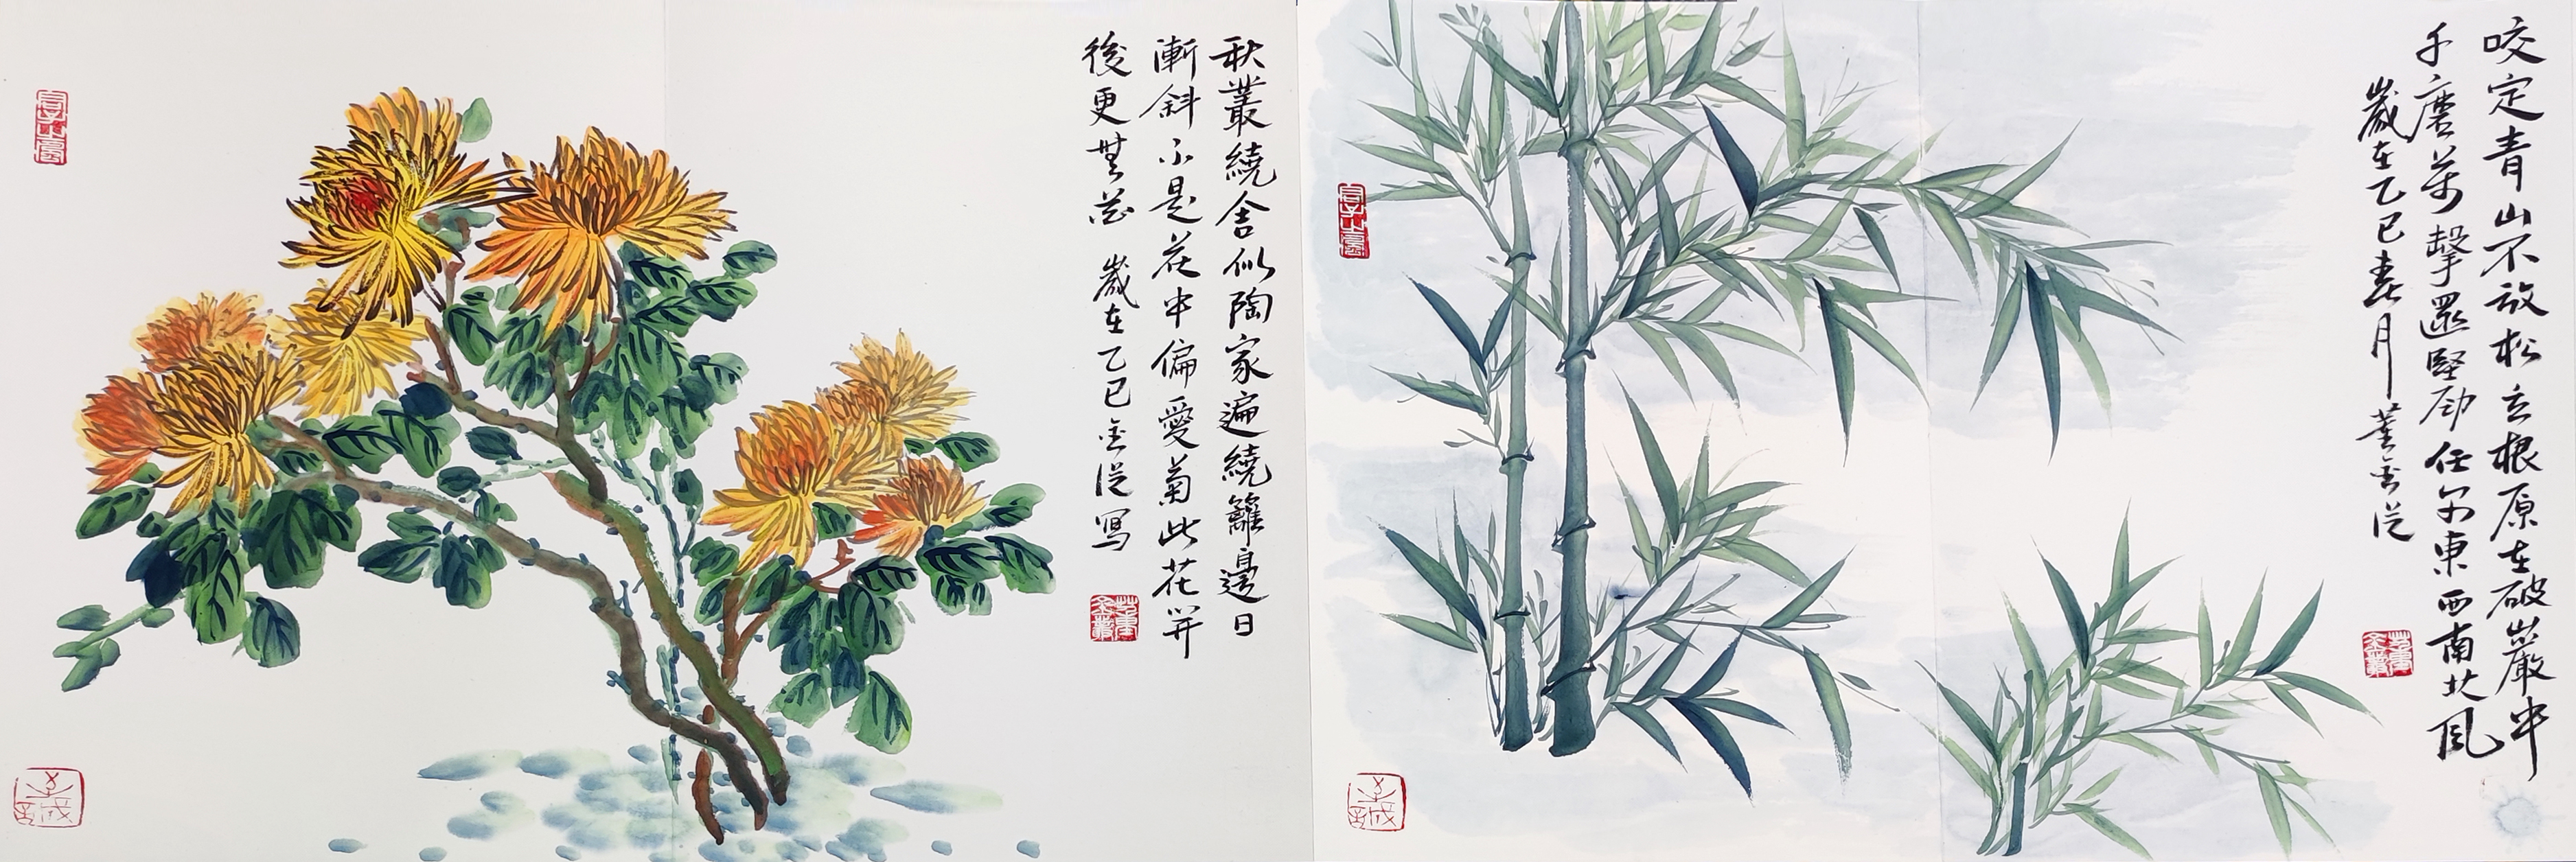 秋叢繞舍似陶家遍繞籬邊日
漸斜不是花中偏愛菊此花开
後更無花 歲在乙巳 金从寫
咬定青山不放松立根原在破巖中
千磨萬擊還堅劲任尔東西南北風
歲在乙巳春月 董金从